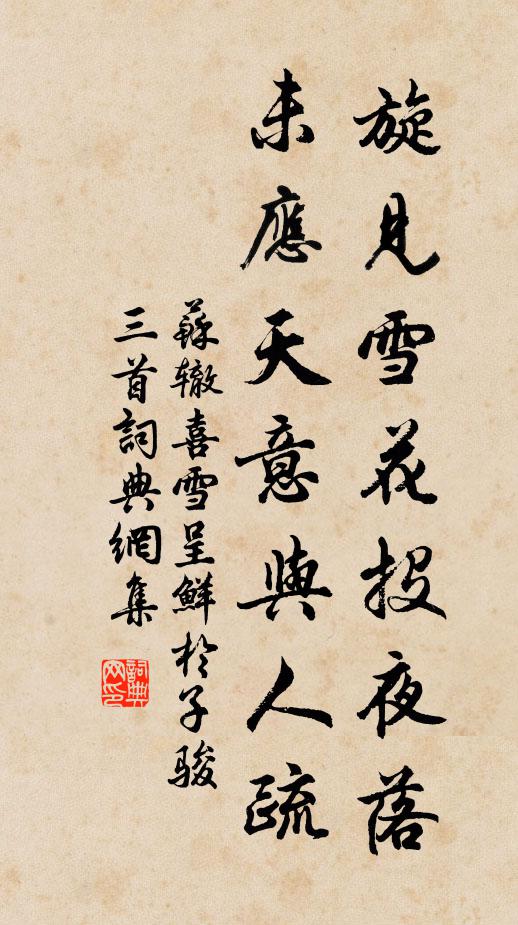 旋見雪花投夜落
未應天意與人疏
蘇辙喜雪呈鮮於子駿
三首詞典網集
詞典网印